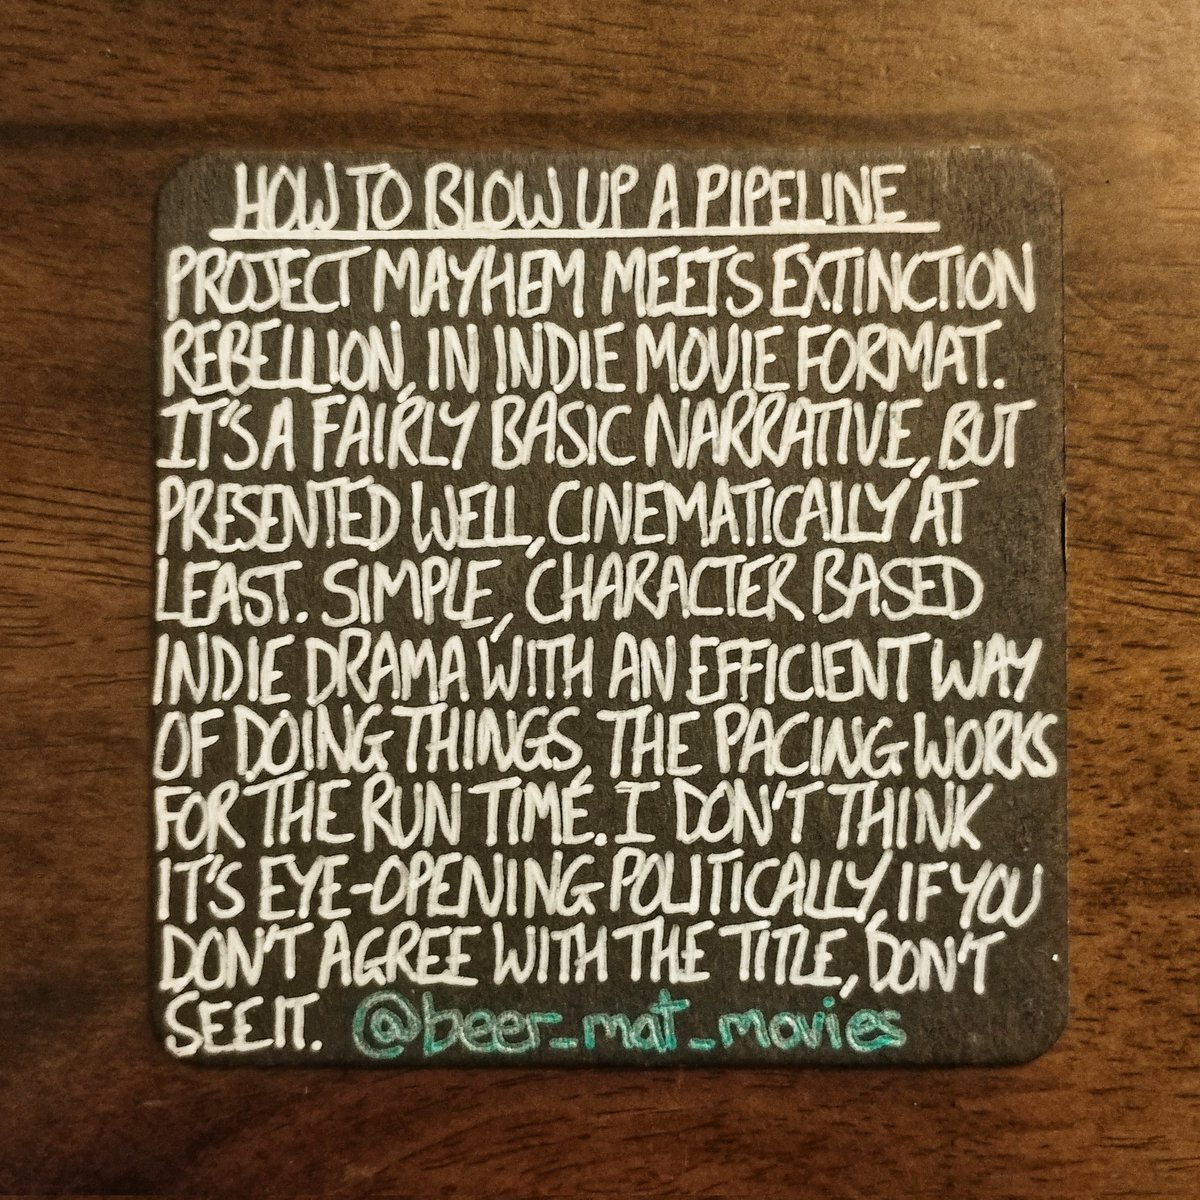 HOW TO BLOW UP A PIPELINE
PROJECT MAYHEM MEETS EXTINCTION
REBELLION, IN INDIE MOVIE FORMAT.
IT'S A FAIRLY BASIC NARRATIVE, BUT
PRESENTED WELL, CINEMATICALLY AT
LEAST. SIMPLE, CHARACTER BASED
INDIE DRAMA WITH AN EFFICIENT WAY
OF DOING THINGS, THE PACING WORKS
FOR THE RUN TIME. I DON'T THINK
IT'S EYE-OPENING POLITICALLY, IF YOU
DON'T AGREE WITH THE TITLE, DON'T
SEE IT. @beer_mat_movies